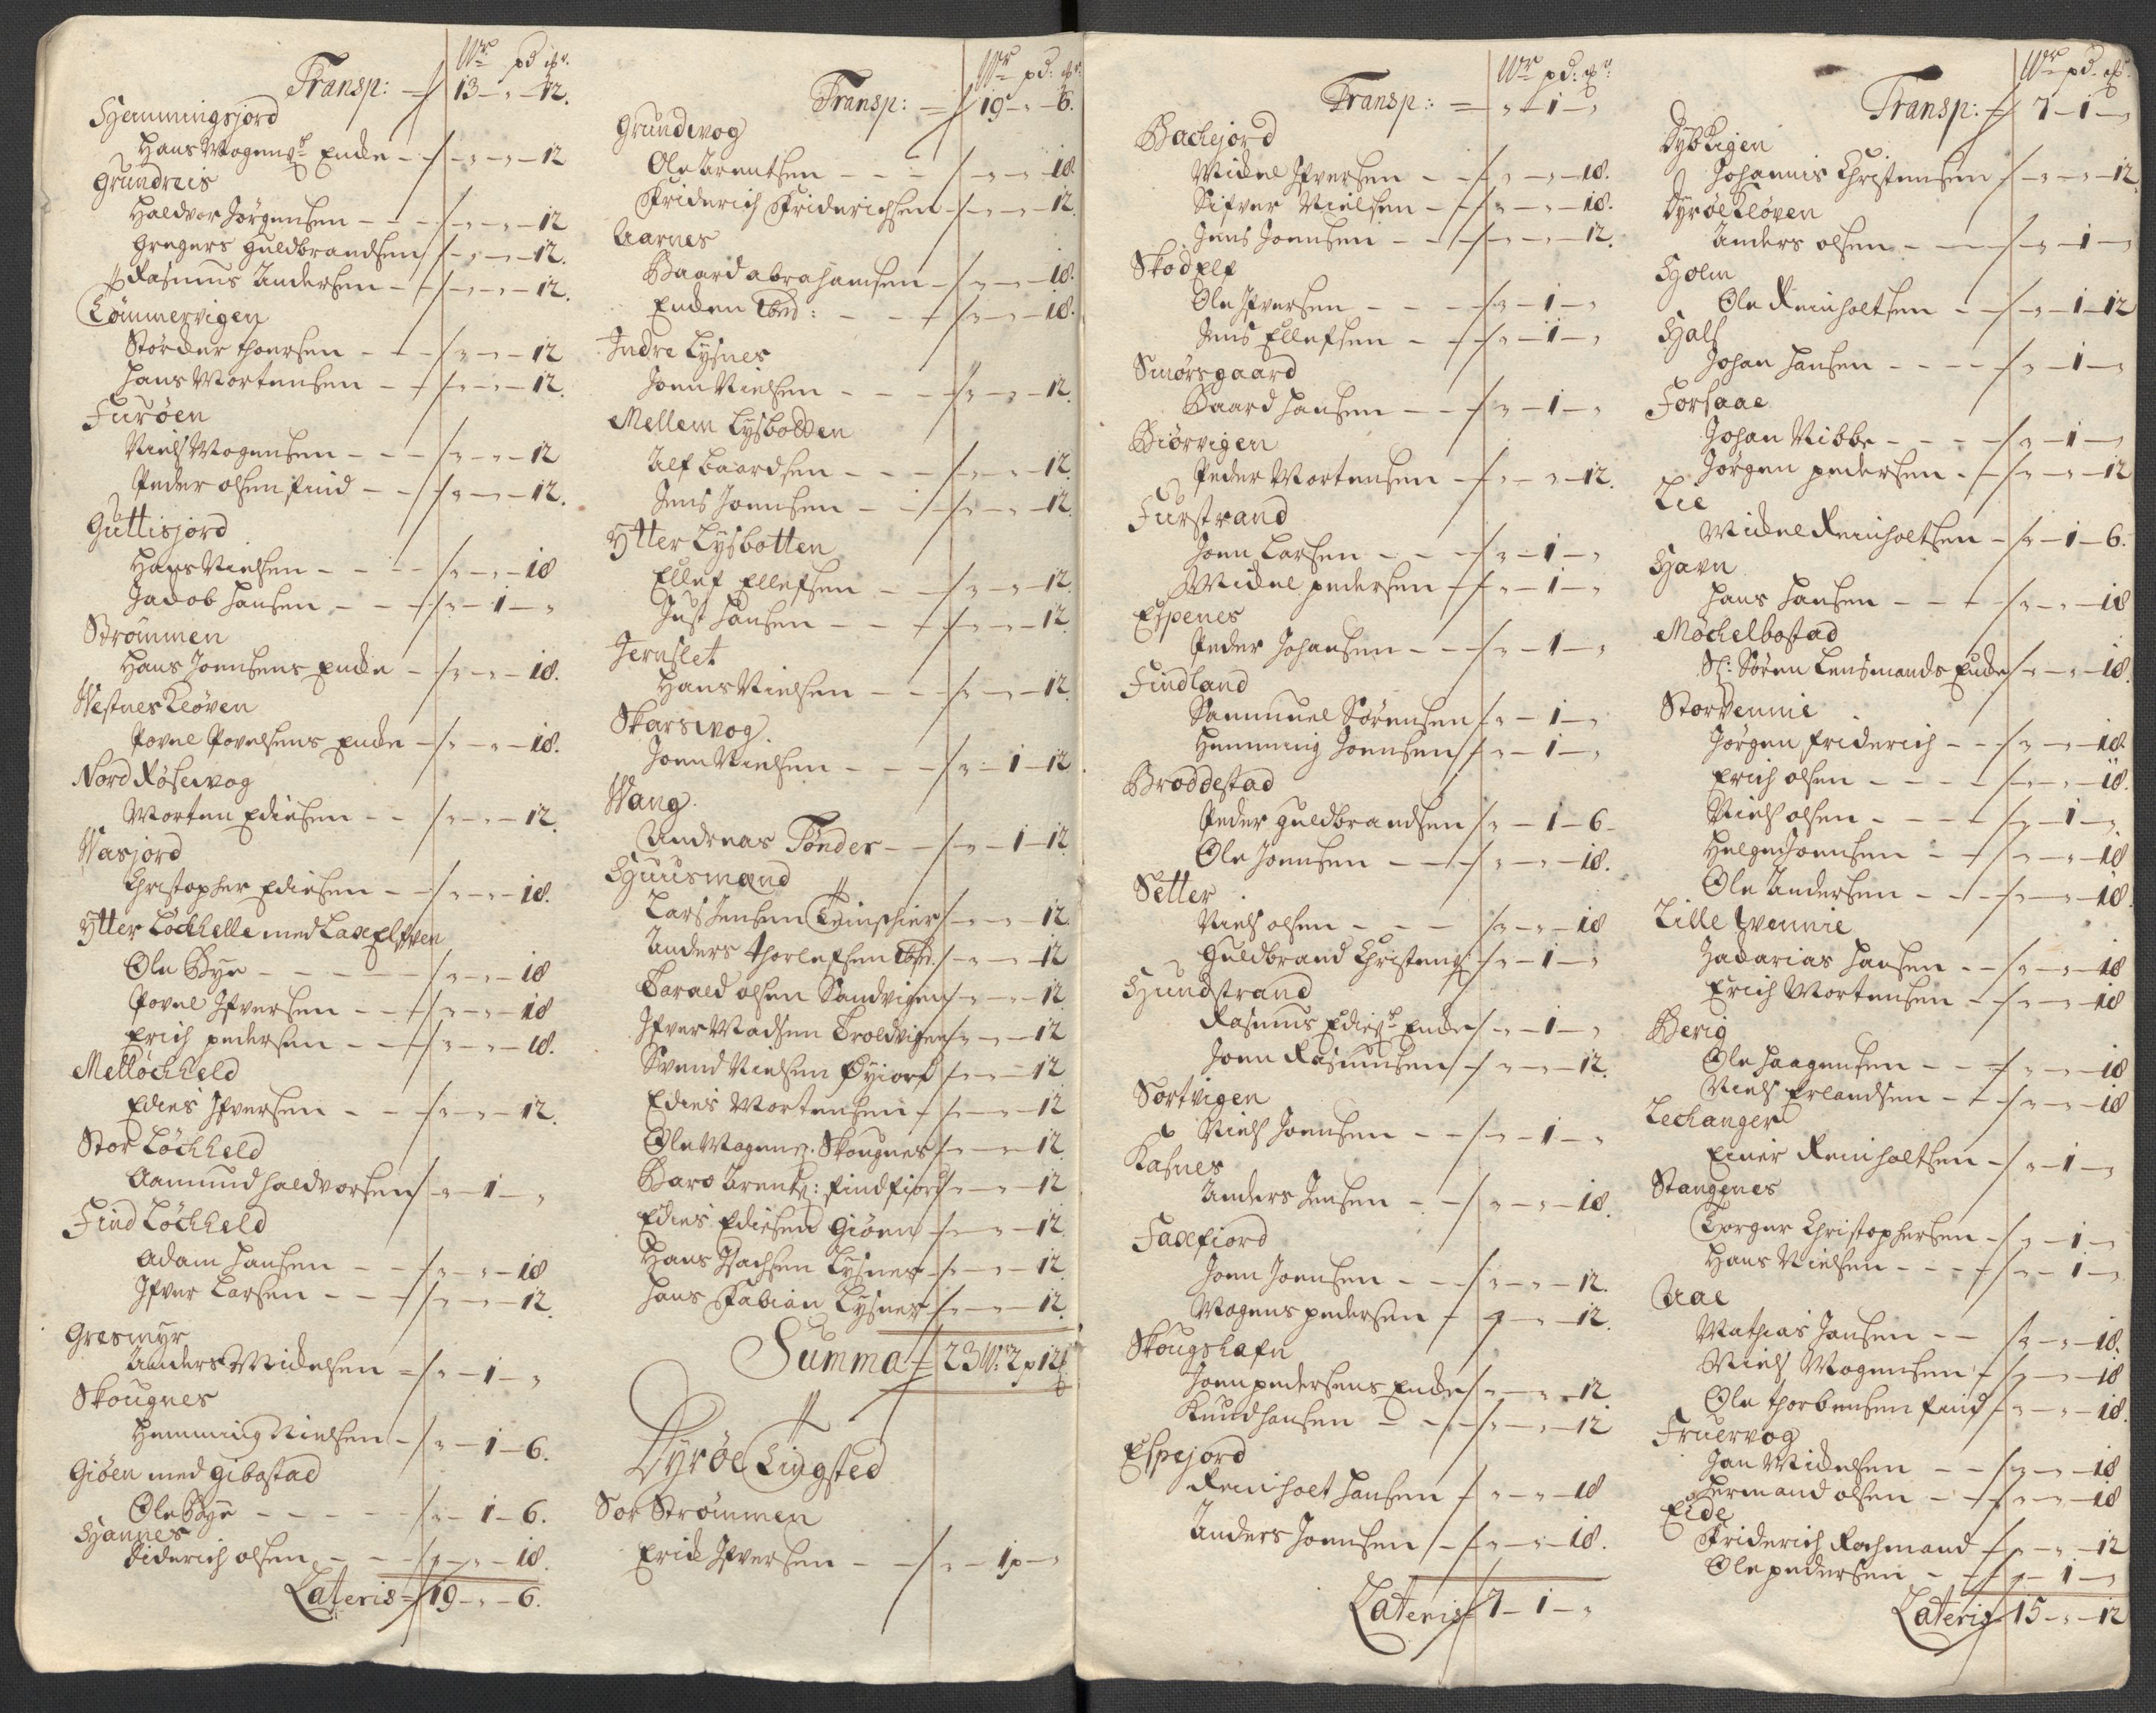 Wr pd ℔r.
Transp: = 13 - „ - 12.
Hemmingsjord
Hans Mogens Encke - „ - „ - 12
Grundreis
Haldvor Jørgensen - - - „ - „ - 12
Gregers Guldbrandsen - „ - „ - 12.
Rasmus Andersen - - „ - „ - 12.
Tømmervigen
Størcker Thoersen - - „ - „ - 12
Hans Mortensen - - „ - „ - 12.
Furøen
Niels Mogensen - - - „ - „ - 12
Peder olsen find - - „ - „ - 12.
Guttisjord
Hans Nielsen - - - - „ - „ - 18
Jacob Hansen - - - „ - 1 - „
Strømmen
Hans Joensens Encke - „ - „ - 18.
Westnes Kløven
Povel Povelsens Encke - „ - „ - 18.
Nord Røsewog
Morten Ediesen - - „ - „ - 12.
Wasjord
Christopher Ediesen - - „ - „ - 18.
Ytter Løckhelle med Laxelfven
Ole Bye - - - - - „ - „ - 18
Povel Ifversen - - - „ - „ - 18
Erich pedersen - - - „ - „ - 18.
Melløckheld
Edies Ifversen - - - „ - „ - 12.
Stor Løckheld
Aamund Haldvorsen „ - 1 - „
Find Løckheld
Adam Hansen - - - „ - „ - 18
Ifver Larsen - - - „ - „ - 12.
Gresmyr
Anders Michelsen = „ - 1 - „
Skougnes
Hemming Nielsen - „ - 1 - 6.
Giøen med gibostad
Ole Bye - - - - - „ - 1 - 6.
Hannes
Diderich olsen - - - „ - „ - 18.
Lateris = 19 - „ - 6.
Wr pd: ℔r:
Transp: = 19 - „ - 6.
Grundwog
Ole Arentsen - - - „ - „ - 18.
Friderich Friderichsen - „ - „ - 12.
Aarnes
Baard abrahamsen - „ - „ - 18.
Enden ibid: - - - „ - „ - 18.
Indre Lysnes
Joen Nielsen - - - - „ - „ - 12.
Mellem Lysbotten
Alf Baardsen - - - - „ - „ - 12.
Jens Joensen - - - „ - „ - 12.
Ytter Lysbotten
Ellef Ellefsen - - „ - „ - 12.
Just Hansen - - - „ - „ - 12.
Jernslet
Hans Nielsen - - - „ - „ - 12.
Skarswog.
Joen Nielsen - - - „ - 1 - 12
Wang.
Andreas Tønder - - „ - 1 - 12.
Huusmænd
Lars Jensen - „ - „ - 12.
Anders Thorlefsen ibid. „ - „ - 12
Harald olsen Sandvigen „ - „ - 12
Ifver Madsen Troldvigen „ - „ - 12
Svend Nielsen Øyiord „ - „ - 12
Edies Mortensen - „ - „ - 12
Ole Mogens. Skougnes „ - „ - 12.
Baro Arents: findfiord „ - „ - 12
Edies Ediesen Giøen - „ - „ - 12.
Hans Isachsen Lysnes - „ - „ - 12.
Hans Fabian Lysnes - „ - „ - 12.
Summa = 23 W: 2 p 12 ℔
Dyrøe Tingsted
Sør Strømmen
Erick Ifversen - - „ - 1p - „
Wr pd: ℔r:
Transp: = „ - 1 - „
Backejord
Michel Ifversen - - „ - „ - 18.
Sifver Nielsen - - „ - „ - 18.
Jens Joensen - - - „ - „ - 12.
Skodelf
Ole Ifversen - - - - „ - 1 - „
Jens Ellefsen - - - „ - 1 - „
Smørsgaard
Baard Hansen - - - „ - 1 - „
Biørvigen
Peder Mortensen - „ - „ - 12.
Furstrand
Joen Larsen - - - - „ - 1 - „
Michel pedersen - - „ - 1 - „
Espenes
Peder Johansen - - - „ - 1 - „
Findland
Sammuel Sørensen - „ - 1 - „
Hemming Joensen - „ - 1 - „
Broddestad
Peder Guldbrandsen „ - 1 - 6 -
Ole Joensen - - - „ - „ - 18.
Setter
Niels olsen - - - „ - „ - 18
Guldbrand Christens: „ - 1 - „
Hundstrand
Rasmus Edies Encke „ - 1 - „
Joen Rasmusen - „ - „ - 12.
Sørtvigen
Niels Joensen - - - „ - 1 - „
Kasnes
Anders Jensen - - - „ - „ - 18.
Faxefiord
Joen Joensen - - - „ - „ - 12.
Mogens pedersen - „ - „ - 12.
Skougshafn
Joen pedersens Encke „ - „ - 12
Knud Hansen - - - „ - „ - 12
Espejord
Reinholt Hansen - „ - „ - 18
Anders Joensen - - „ - „ - 18.
Lateris = 7 - 1 - „
Wr pd. ℔r.
Transp: = 7 - 1 - „
Dybvigen
Johannis Christensen - „ - „ - 12.
Dyrøekløven
Anders olsen - - - - „ - 1 - „
Holm
Ole Reinholtsen - - „ - 1 - 12
Hals
Johan Hansen - - - - „ - 1 - „
Forsaae
Johan Nibbe - - - - „ - 1 - „
Jørgen pedersen - - „ - „ - 12
Lie
Michel Reinholtsen - „ - 1 - 6.
Havn
Hans Hansen - - - - „ - „ - 18
Møckelbostad
Sl: Søren Lensmands Encke „ - „ - 18.
Storvennie
Jørgen Friderich - - „ - „ - 18.
Erich olsen - - - - - „ - „ - 18.
Niels olsen - - - - - „ - 1 - „
Helge Joensen - - „ - „ - 18
Ole Andersen - - - „ - „ - 18.
Lille Wennie
Zacarias Hansen - - „ - „ - 18
Erich Mortensen - - „ - „ - 18
Berig
Ole Haagensen - - - „ - „ - 18
Niels Erlandsen - - „ - „ - 18
Lechanger
Einer Reinholtsen - „ - 1 - „
Stangenes
Torger Christophersen - „ - 1 - „
Hans Nielsen - - - - „ - 1 - „
Aae
Mathias Jansen - - „ - „ - 18.
Niels Mogensen - „ - „ - 18
Ole Thorbensen find - „ - „ - 18.
Fruervog
Jan Michelsen - - „ - „ - 18
Hermand olsen - - „ - „ - 18
Eide
Friderich Rochmand - „ - „ - 12
Ole pedersen - - - „ - 1 - „
Lateris 15 - „ - 12